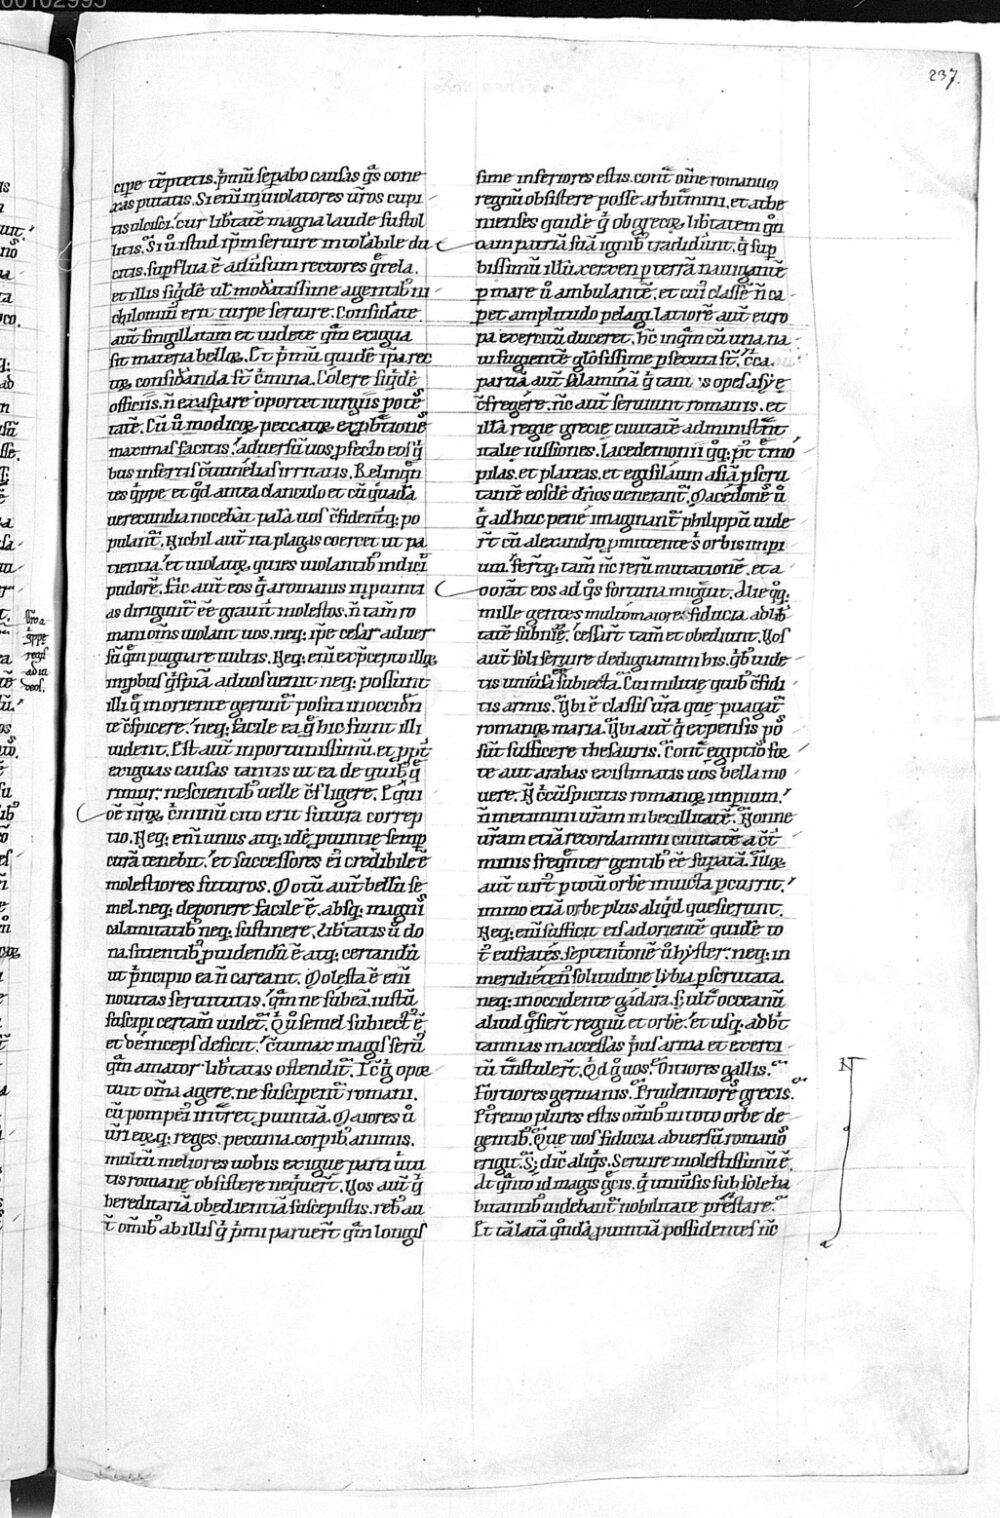 237.
cipe tēptetis. p̄mū sepabo causas q̄s cone
xas putatis. Si enī iniuiolatores ūros cupi
tis ulcisci. cur lib̄tatē magna laude sustol
litis. Si ū istud ip̄m seruire intolābile du
citis. supflua ē adūsum rectores q̄rela.
et illis siq̄dē ul̄ modātissime agentib; ni
chilominꝰ erit turpe seruire. Considāte
aut̄ singillatim et uidete qm̄ exigua
sit materia belloꝝ. Et p̄mū quidē ip̄a rec
toꝝ considānda st̄ c̄mina. Colere siq̄dē
officiis. n̄ exaspare oportet iurgiis potēs
tatē. Cū ū modicoꝝ peccatoꝝ exp̄btionēs
maximas facitis. aduersū uos pfecto eos q̄
bus infertis c̄tumelias irritatis. Relinq̄n
tes q̄ppe et qd̄ antea clanculo et cū q̄dā
uerecundia nocebāt palā uos c̄fident̄q; po
pulant̄. Nichil aut̄ ita plagas coercet ut pa
tientia. et uiolatoꝝ quies uiolantib; indicīt
pudorē. Sic aut̄ eos q̄ a romanis in puinti
as dirigunt̄ ēē grauit̄ molestos. n̄ tam̄ ro
mani om̄s uiolant uos. neq; ip̄e cesar aduer
sū q̄m pugnare uultis. Neq; enī ex p̄cepto illoꝝ
improbus q̄spiā ad uos uenit neq; possunt
illi q̄ in oriente gerunt̄ positi in occidēn
te c̄spicere. neq; facile ea q̄ hic fiunt illi
uident. Est aut̄ inportunissimū. et ppt̄
exiguas causas tantis ut ea de quib; q̄
rimur nescientib; uelle c̄fligere. Equi
dē nr̄oꝝ c̄minū cito erit futura correp
tio. Neq; enī unus atq; idē puintiē semp
curā tenebit. et successores eī credibile ē
molestiores futuros. Motū aut̄ bellū se
mel neq; deponere facile ē. absq; magnīs
calamitatib; neq; sustinere. Lib̄tatis ū do
na sitientib; puidendū ē atq; certandū
ut p̄ncipio ea n̄ careant. Molesta ē enī
nouitas seruitutis. q̄m ne subeā iustū
suscipi certam̄ uidet̄. Qi ū semel subiectꝰ ē
et deinceps deficit. c̄tumax magis seruꝰ
q̄m amator lib̄tatis ostendit̄. Icꝰcq̄ opoꝛ
tuit om̄a agere. ne susciperent̄ romani.
cū pompeī intrēret puintiā. Maiores ū
ūri eoꝝq; reges. pecunia. corpib; animis.
multū meliores uobis exigue parti uirtu
tis romanę obsistere neq̄uert̄. Uos aut̄ q̄
hereditariā obedientiā suscepistis. rebꝰ au
t̄ omīb; ab illis q̄ p̄mi paruert̄ q̄m longis
sime inferiores estis. cont̄ om̄e romanum
regnū obsistere posse arbitmini. et athe
nienses quidē q̄ ob grecoꝝ lib̄tatem q̄n
dam patriā suā ignib; tradidūnt. q̄ sup
bissimū illū xerxen p terrā nauigantē
p mare ū ambulantē. et cui classē n̄ ca
pet amplitudo pelagi. latiorē aut̄ euro
pa exercitū duceret. h̄c inq̄m cū una na
ui fugientē glōsissime psecuti st̄. c̄ca.
paruā aut̄ salaminā q̄ tantas opes asye
c̄fregēre. n̄c aut̄ seruiunt romanis. et
illā regie grecie ciuitatē administn̄t
italie iussiones. Lacedemonii q̄q; p̄t t̄mo
pilas. et plateas. et egisilāum asiā pscru
tantē eosdē dn̄os uenerant̄. Macedones ū
q̄ adhuc pene imaginant̄ philippū uide
rt̄ cū alexandro pmittentes orbis impi
um. fert̄q; tam̄ n̄c rerū mutationē. et a
dorat̄ eos ad q̄s fortuna mig̃ut. Alie q̄q;
mille gentes multo maiores fiducia ad lib̄
tatē subnixē. cessart̄ tam̄ et obediunt. Uos
aut̄ soli seruire dedignamini his. q̄b; uide
tis uniūsa subiecta. Cui militie quib; c̄fidi
tis armis. Ubi ē classis ur̄a que puagat̄
romanoꝝ maria. Ubi aut̄ q̄ expensis pos
sūt sufficere thesauris. Cont̄ egiptios foꝛ
te aut arabas existimatis uos bella mo
uere. N̄ c̄cūspicitis romanoꝝ impium.
n̄ metimini ur̄am inbecillitatē. Nonne
ur̄am etiā recordamini ciuitatē a c̄t̄
minis freq̄nter gentib; ēē supatā. Illoꝝ
aut̄ uirtꝰ p totū orbē inuicta pcurrit.
immo etiā orbe plus aliq̄d. quesierunt.
Neq; enī sufficit eis ad orientē quidē to
tꝰ eufrates. septentionē ū hyster. neq; in
meridiē ten̄ solitudine lybia pscrutata.
neq; in occidente gādara. s; ultꝰ occeanū
aliud q̄siert̄ regnū et orbē. et usq; ad bt̄
tannias inaccessas p̄us arma et exerci
tū t̄nstulert̄. Qd̄ q̄ uos. Ditiores gallis.
Fortiores germanis. Prudentiores grecis.
Pt̄remo plures estis om̄ib; in toto orbe de
gentib;. Que uos fiducia aduersū romanos
erigit. S; dic̄ aliq̄s. Seruire molestissimū ē.
At q̄nto id magis grecis. q̄ uniūsis sub sole ha
bitantib; uidebant̄ nobilitate prēstare.
Et tā latā q̄ndā puintiā possidentes n̄c